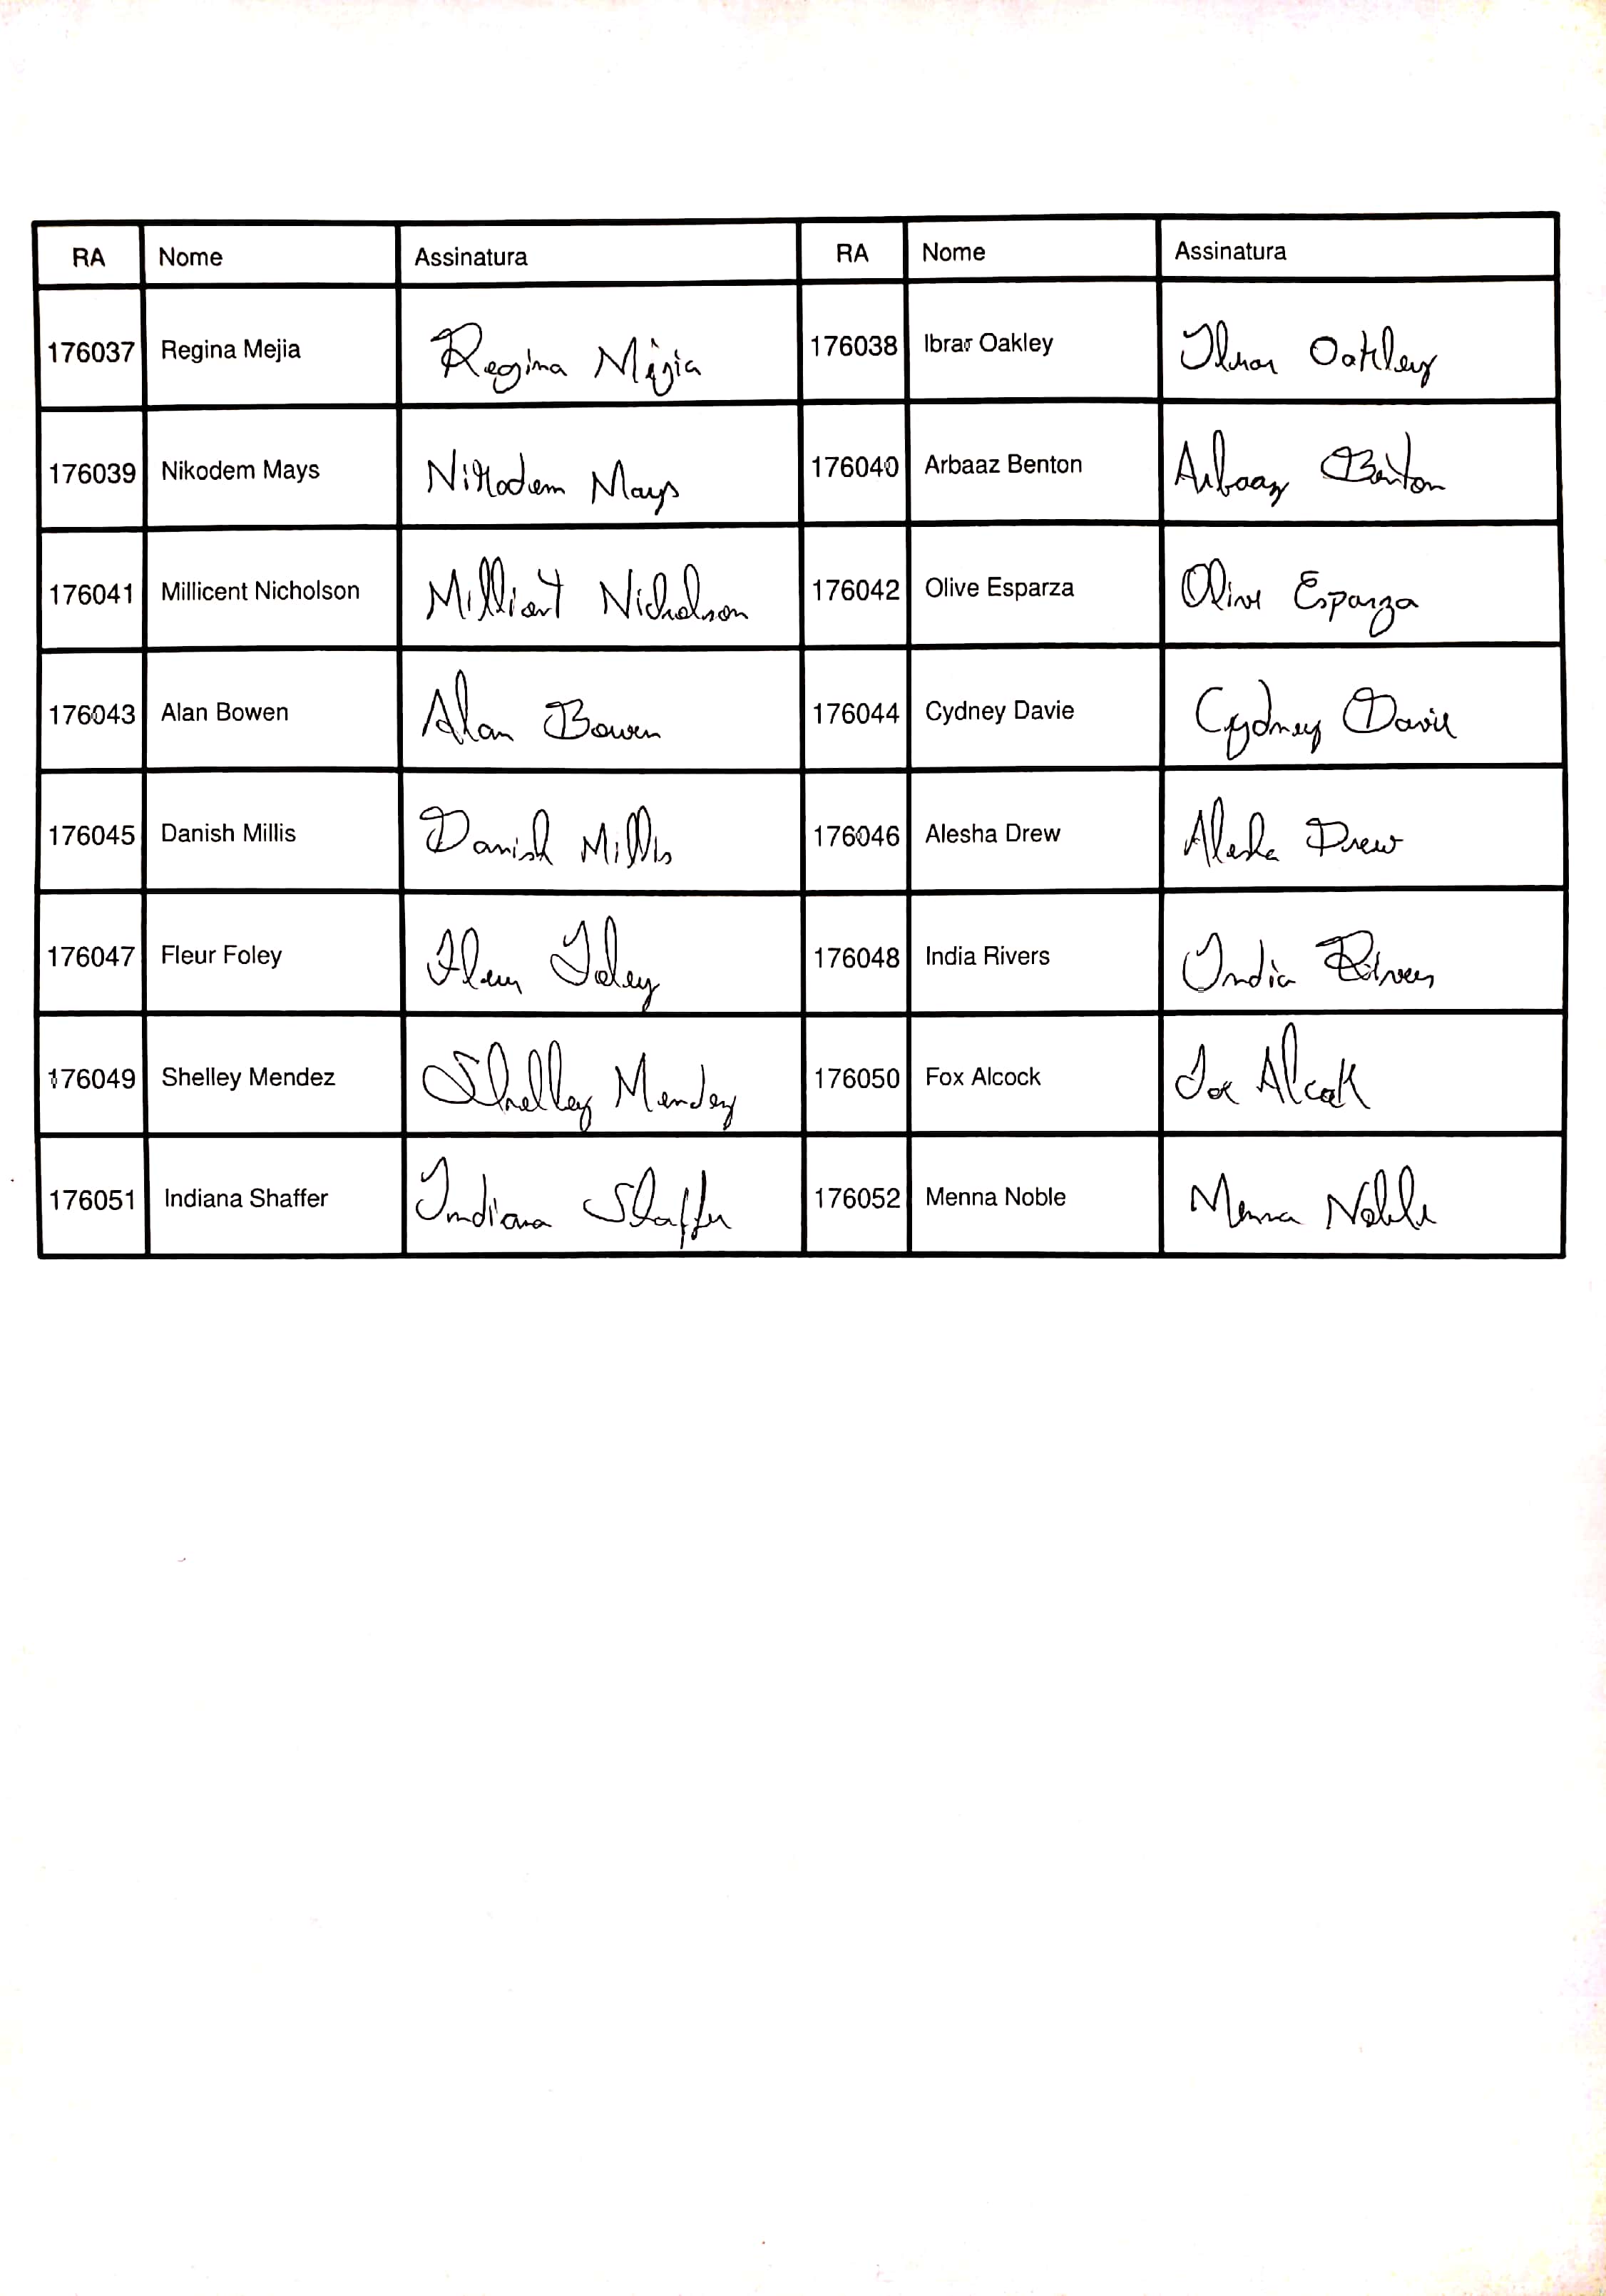 RA Nome Assinatura RA Nome Assinatura
176037 Regina Mejia Regina Mejia 176038 Ibrar Oakley Ibrar Oakley
176039 Nikodem Mays Nikodem Mays 176040 Arbaaz Benton Arbaaz Benton
176041 Millicent Nicholson Millicent Nicholson 176042 Olive Esparza Olive Esparza
176043 Alan Bowen Alan Bowen 176044 Cydney Davie Cydney Davie
176045 Danish Millis Danish Millis 176046 Alesha Drew Alesha Drew
176047 Fleur Foley Fleur Foley 176048 India Rivers India Rivers
176049 Shelley Mendez Shelley Mendez 176050 Fox Alcock Fox Alcock
176051 Indiana Shaffer Indiana Shaffer 176052 Menna Noble Menna Noble